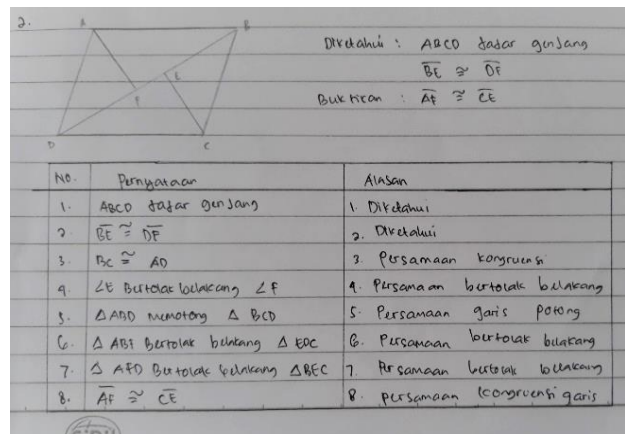 2.
A B
E
F
D C
Diketahui : ABCD jajar genjang
BE ≅ DF
Buktikan : AF ≅ CE
No. Pernyataan Alasan
1. ABCD jajar genjang 1. Diketahui
2. BE ≅ DF 2. Diketahui
3. BC ≅ AD 3. Persamaan kongruensi
4. ∠E Bertolak belakang ∠F 4. Persamaan bertolak belakang
5. △ABD memotong △ BCD 5. Persamaan garis potong
6. △ ABF Bertolak belakang △ EDC 6. Persamaan bertolak belakang
7. △ AFD Bertolak belakang △BEC 7. Persamaan bertolak belakang
8. AF ≅ CE 8. persamaan kongruensi garis